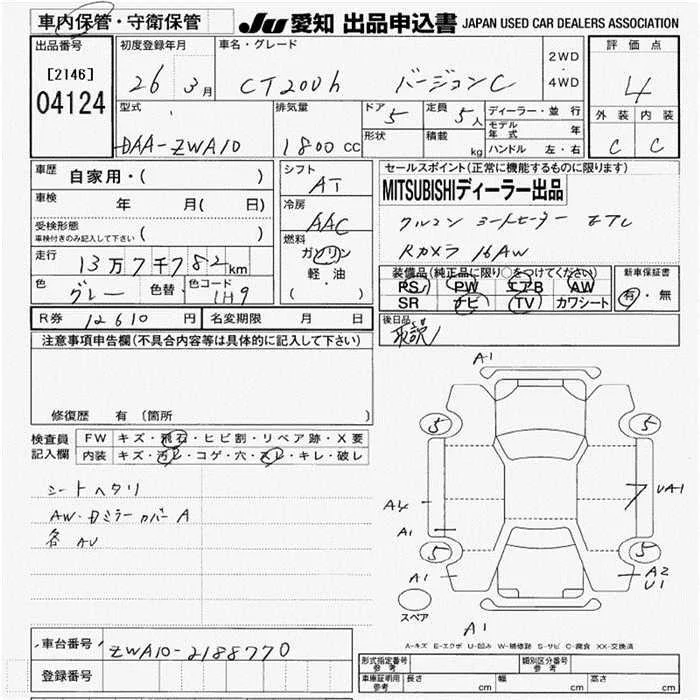 車内保管・守衛保管
JU 愛知 出品申込書 JAPAN USED CAR DEALERS ASSOCIATION
出品番号
[2146]
04124
初度登録年月
26 3月
車名・グレード
CT200h バージョンC
2WD
・
4WD
評価点
4
型式
DAA-ZWA10
排気量
1800 CC
ドア
5
定員
5人
形状
積載
kg
ディーラー・並行
モデル年式 年
ハンドル 左・右
外装 内装
C C
車歴
自家用・( )
車検
年 月( 日)
受検形態
車検付きのみ記入して下さい ( )
走行
13万7千782km
色
グレー
色替
色コード
1H9
シフト
AT
冷房
AAC
燃料
ガソリン
軽・油
( )
セールスポイント(正常に機能するものに限ります)
MITSUBISHIディーラー出品
クルコン シートヒーター ETC
Rカメラ 16AW
装備品(純正品に限り○をつけてください)
PS PW エアB AW
SR ナビ TV カワシート
新車保証書
有・無
R券 12610 円
名変期限 月 日
後日品
取説
注意事項申告欄(不具合内容等は具体的に記入して下さい)
修復歴 有(箇所 )
検査員
記入欄
FW キズ・飛石・ヒビ割・リペア跡・X要
内装 キズ・汚レ・コゲ・穴・スレ・キレ・破レ
シートヘタリ
AW・Dミラーカバー A
各 AU
A1
5
5
A4
A1
UA1
5
5
A1
A2
U1
スペア
A1
A-キズ E-エクボ U-凹み W-補修跡 S-サビ C-腐食 XX-交換済
車台番号
ZWA10-2188770
登録番号
形式指定番号
参考
類別区分番号
参考
車庫証明用
参考
長さ cm
幅 cm
高さ cm